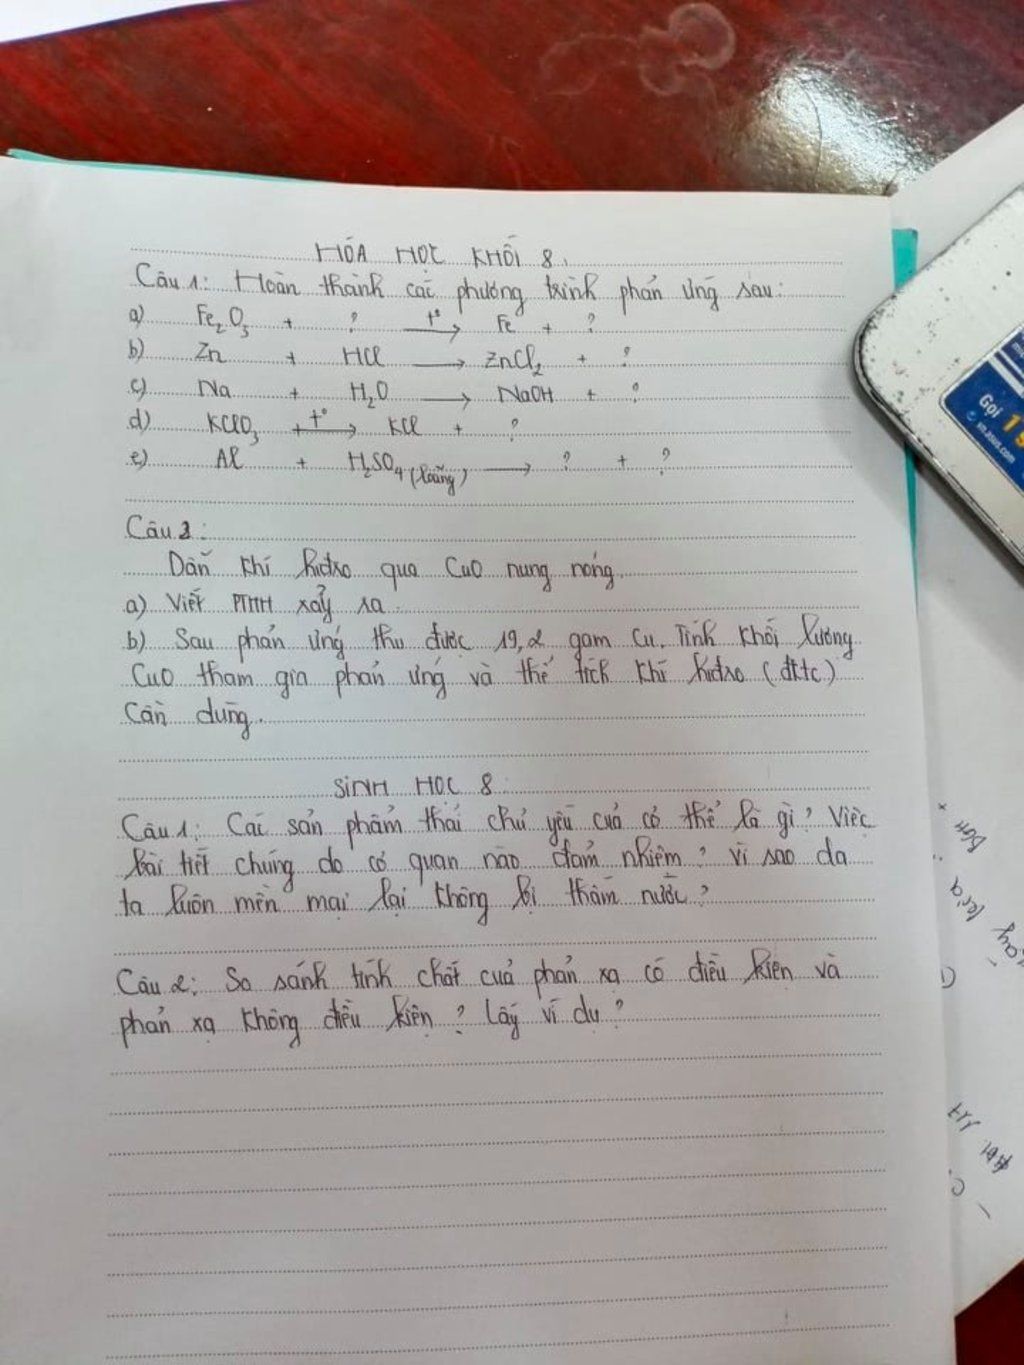 HÓA HỌC KHỐI 8.
Câu 1: Hoàn thành các phương trình phản ứng sau:
a) Fe₂O₃ + ? t° → Fe + ?
b) Zn + HCl → ZnCl₂ + ?
c) Na + H₂O → NaOH + ?
d) KClO₃ t° → KCl + ?
e) Al + H₂SO₄ (loãng) → ? + ?
Câu 2:
Dẫn khí hidro qua CuO nung nóng.
a) Viết PTHH xảy ra.
b) Sau phản ứng thu được 19,2 gam Cu. Tính khối lượng
CuO tham gia phản ứng và thể tích khí hidro (đktc)
cần dùng.
SINH HỌC 8
Câu 1: Các sản phẩm thải chủ yếu của cơ thể là gì? Việc
bài tiết chúng do cơ quan nào đảm nhiệm? Vì sao da
ta luôn mền mại lại không bị thấm nước?
Câu 2: So sánh tính chất cuả phản xạ có điều kiện và
phản xạ không điều kiện? Lấy ví dụ?
Gọi 19
vn.asus.com